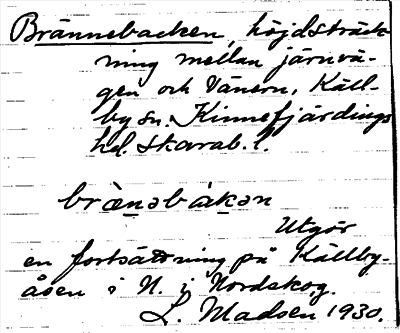 Brännebacken, höjdsträck-
ning mellan järnvä-
gen och Vänern, Käll-
by sn. Kinnefjärdings
hd. Skarab. l.
brɛ̀nəbàkən
Utgör
en fortsättning på Källby-
åsen i N. i Nordskog.
L. Madsen 1930.